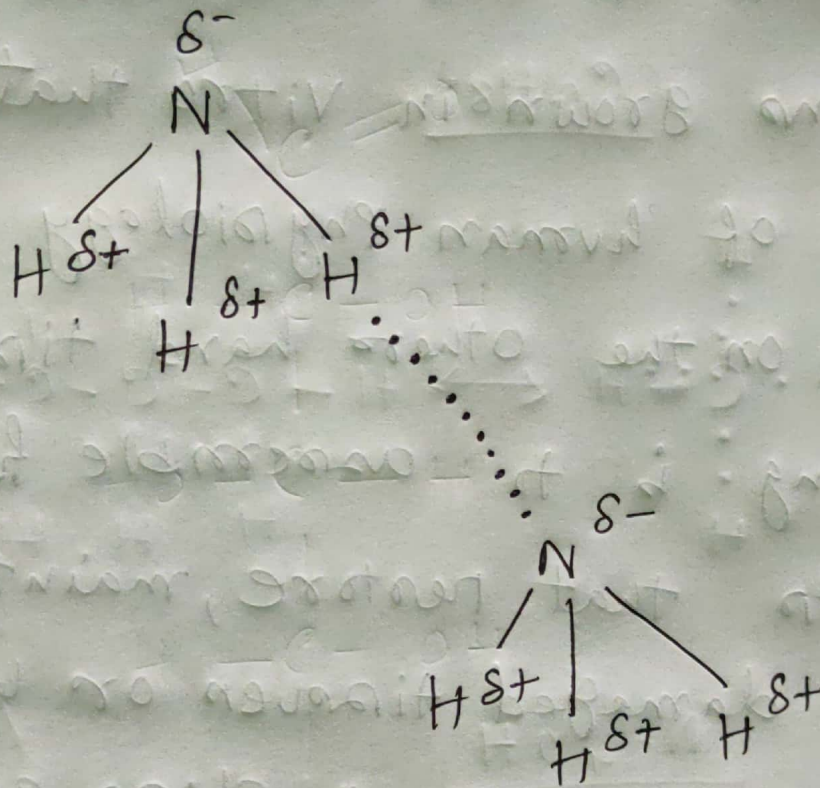 δ-
N
H δ+ H δ+ H δ+
N δ-
H δ+ H δ+ H δ+